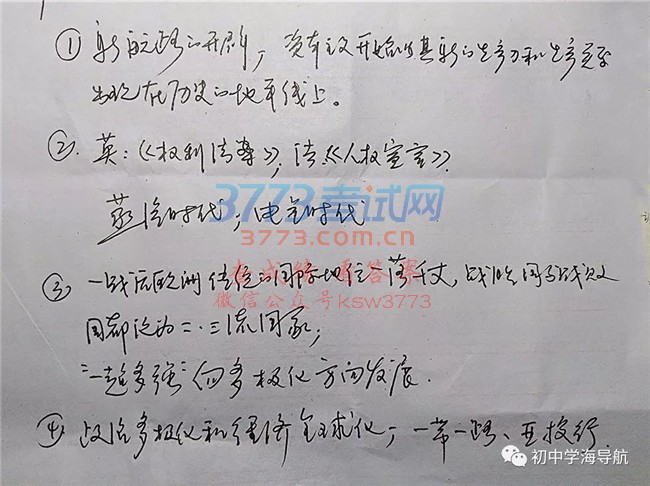 ① 新航路的开辟，资本主义开始以其新的生产力和生产关系
出现在历史的地平线上。
②. 英：《权利法案》，法《人权宣言》.
3773考试网
蒸汽时代；电气时代
3773.com.cn
③ 一战后欧洲传统的国际地位一落千丈，战胜国与战败
微信公众号ksw3773
国都沦为二.三流国家；
"一超多强"向多极化方向发展.
④ 政治多极化和经济全球化；一带一路、亚投行.
初中学海导航